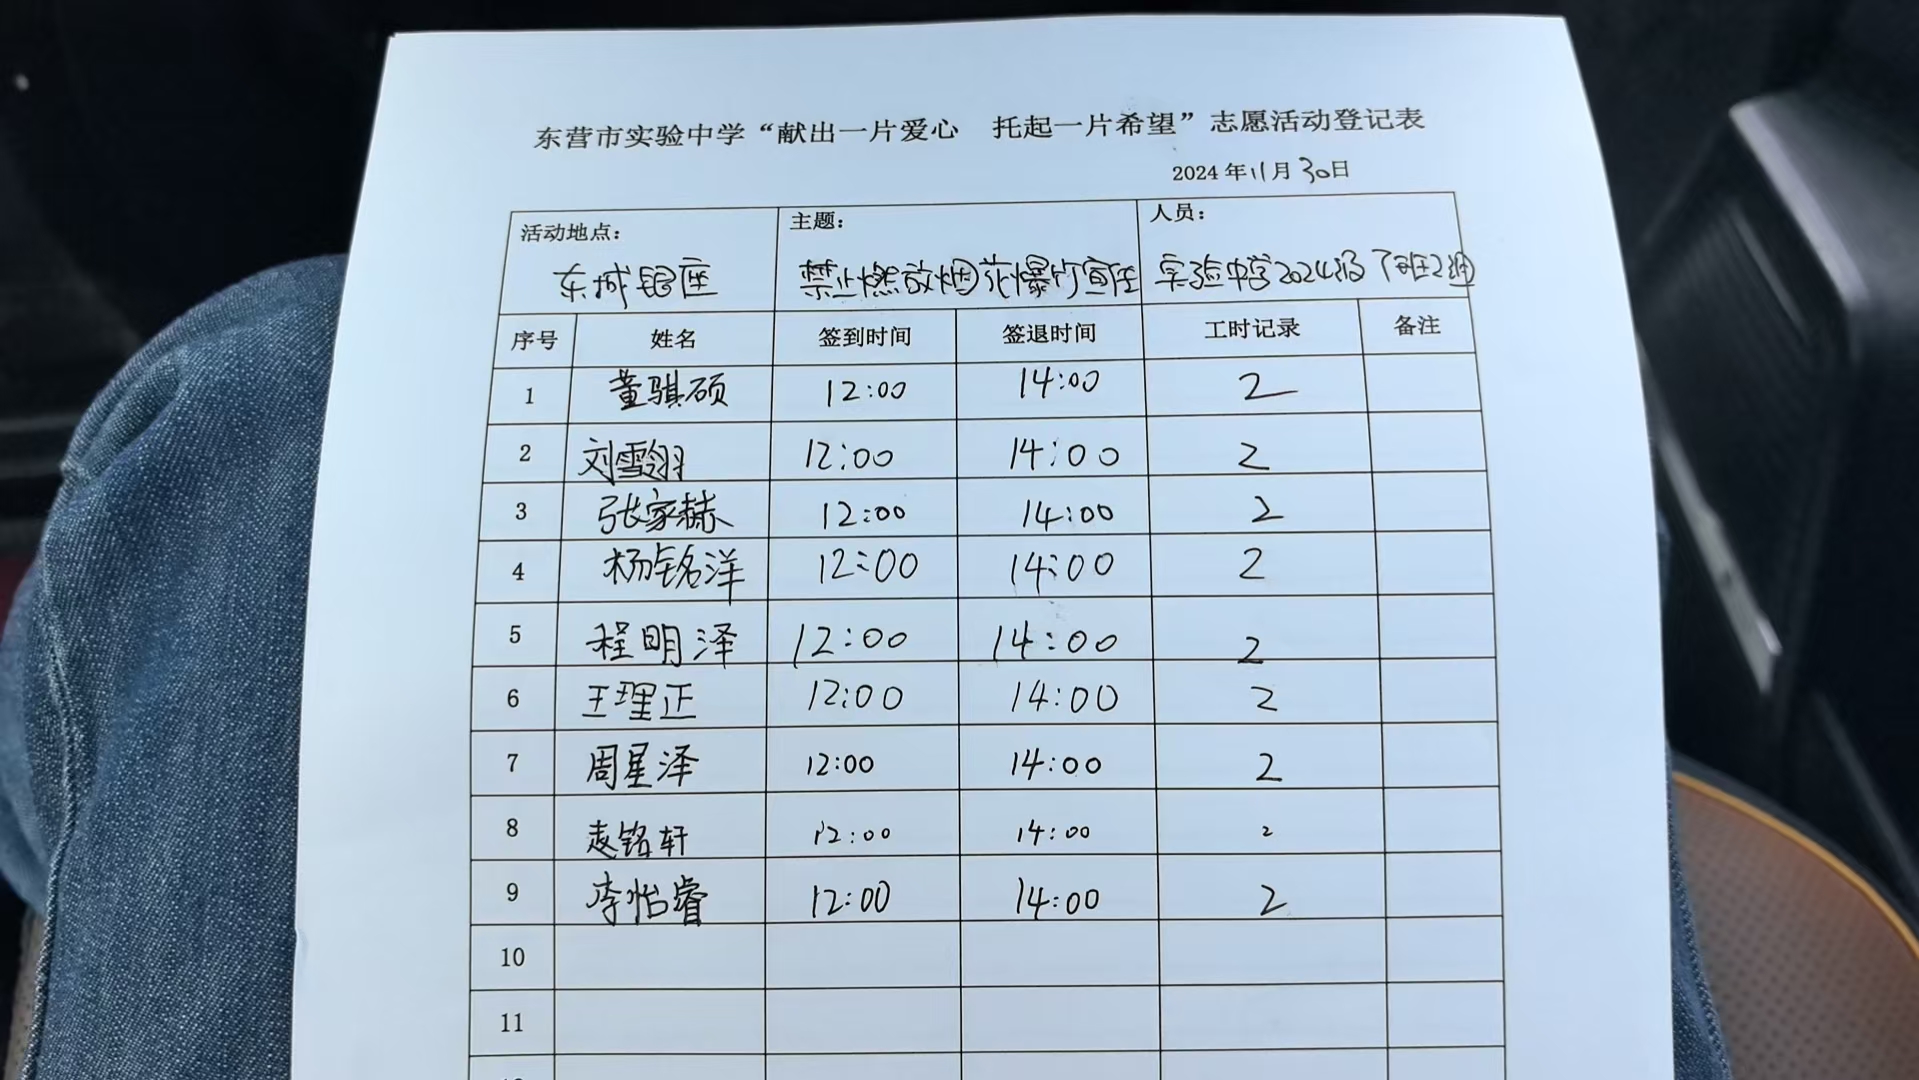 东营市实验中学“献出一片爱心 托起一片希望”志愿活动登记表
2024年11月30日
活动地点： 主题： 人员：
东城银座 禁止燃放烟花爆竹宣传 实验中学2024级7班2组
序号 姓名 签到时间 签退时间 工时记录 备注
1 董骐硕 12:00 14:00 2
2 刘雪翎 12:00 14:00 2
3 张家赫 12:00 14:00 2
4 杨铭洋 12:00 14:00 2
5 程明泽 12:00 14:00 2
6 王理正 12:00 14:00 2
7 周星泽 12:00 14:00 2
8 赵铭轩 12:00 14:00 2
9 李怡睿 12:00 14:00 2
10
11